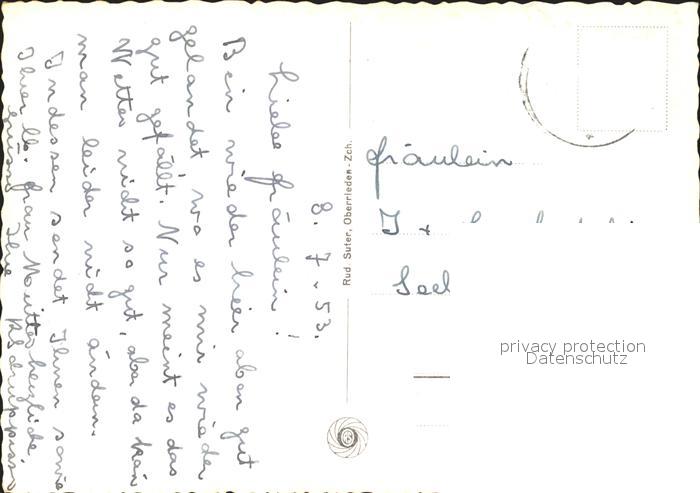 8. 7. 53.
Liebes Fräulein!
Bin wieder hier oben gut
gelandet, wo es mir wieder
gut gefällt. Nur meint es das
Wetter nicht so gut, aber da kan
man leider nicht ändern.
Indessen sendet Ihnen sowie
Ihrer lb. Frau Mutter herzliche
Grüsse Ihre
Rud. Suter, Oberrieden-Zch.
Fräulein
privacy protection
Datenschutz